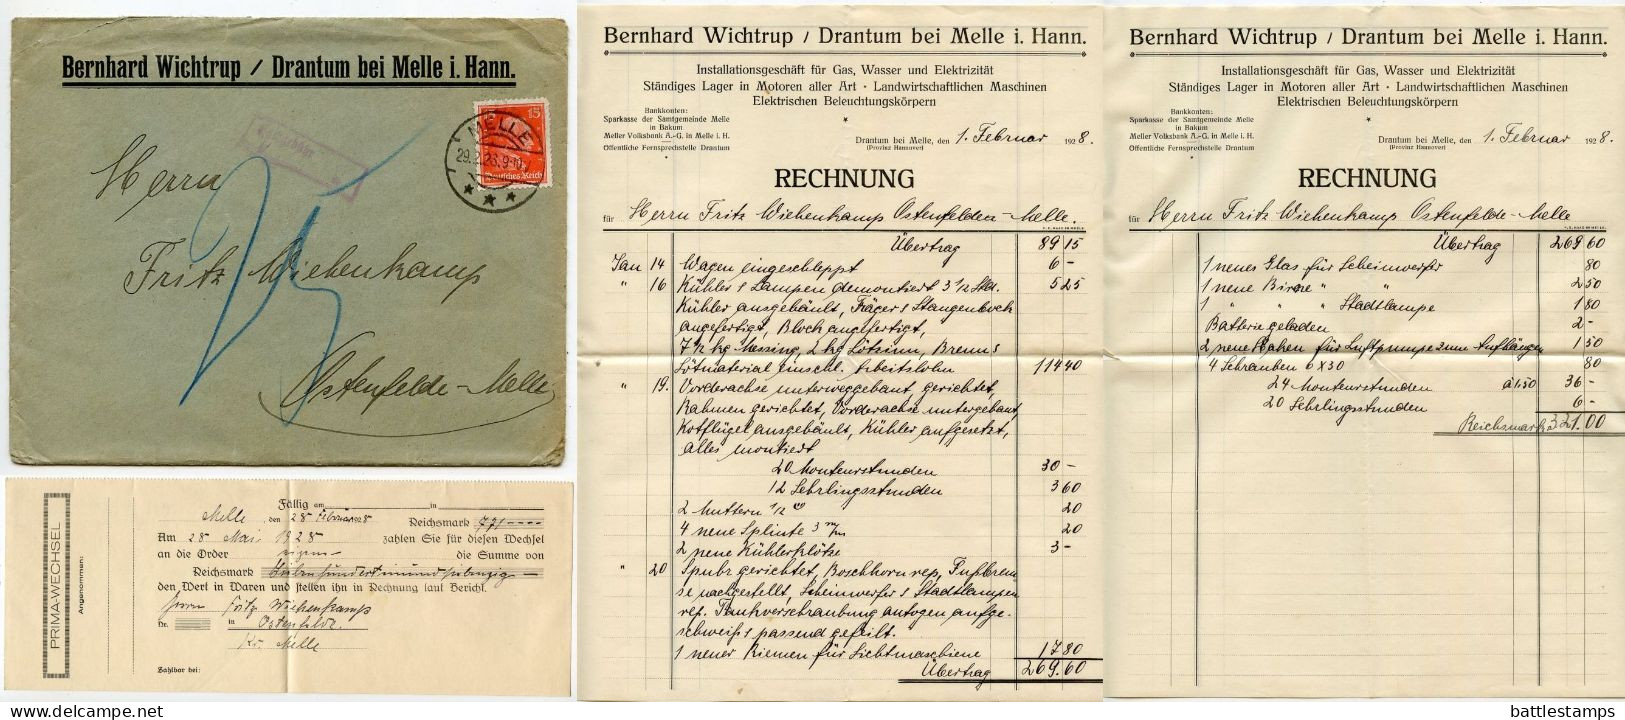 Bernhard Wichtrup / Drantum bei Melle i. Hann.
15
MELLE
Deutsches Reich
Herrn
25
Fritz Wiehenkamp
Ostenfelde-Melle
PRIMA-WECHSEL
Angenommen:
Fällig am in
Melle, den 28 Februar 28 Reichsmark 771
Am 28 Mai 1928 zahlen Sie für diesen Wechsel
an die Order eigene die Summe von
Reichsmark Siebenhunderteinundsiebenzig
den Wert in Waren und stellen ihn in Rechnung laut Bericht.
Herrn Fritz Wiehenkamp
Nr. in Ostenfelde
Kr. Melle
Zahlbar bei:
Bernhard Wichtrup / Drantum bei Melle i. Hann.
Installationsgeschäft für Gas, Wasser und Elektrizität
Ständiges Lager in Motoren aller Art · Landwirtschaftlichen Maschinen
Elektrischen Beleuchtungskörpern
Bankkonten:
Sparkasse der Samtgemeinde Melle
in Bakum
Meller Volksbank A.-G. in Melle i. H.
Öffentliche Fernsprechstelle Drantum
Drantum bei Melle, den 1. Februar 1928.
(Provinz Hannover)
RECHNUNG
für Herrn Fritz Wiehenkamp Ostenfelde-Melle.
Übertrag 89 15
Jan 14 Wagen eingeschleppt 6 -
" 16 Kühler & Lampen demontiert 3 1/2 Std. 5 25
Kühler ausgebäult, Träger & Stangenbock
angefertigt, Block angefertigt,
7 1/2 kg Messing, 2 kg Lötzinn, Brenn &
Lötmaterial einschl. Arbeitslohn 114 40
" 19. Vorderachse unterweggebaut gerichtet,
Rahmen gerichtet, Vorderachse untergebaut,
Kotflügel ausgebäult, Kühler aufgesetzt,
alles montiert
20 Monteurstunden 30 -
12 Lehrlingsstunden 3 60
2 Muttern 1/2 " 20
4 neue Splinte 3 m/m 20
2 neue Kühlerklötze 3 -
" 20 Spubr gerichtet, Boschhorn rep, Fußbrem
se nachgestellt, Scheinwerfer & Stadtlampen
rep. Tankverschraubung autogen aufge-
schweißt & passend gefeilt.
1 neuer Riemen für Lichtmaschiene 17 80
Übertrag 269.60
Bernhard Wichtrup / Drantum bei Melle i. Hann.
Installationsgeschäft für Gas, Wasser und Elektrizität
Ständiges Lager in Motoren aller Art · Landwirtschaftlichen Maschinen
Elektrischen Beleuchtungskörpern
Bankkonten:
Sparkasse der Samtgemeinde Melle
in Bakum
Meller Volksbank A.-G. in Melle i. H.
Öffentliche Fernsprechstelle Drantum
Drantum bei Melle, den 1. Februar 1928.
(Provinz Hannover)
RECHNUNG
für Herrn Fritz Wiehenkamp Ostenfelde-Melle
Übertrag 269 60
1 neues Glas für Scheinwerfer 80
1 neue Birne " " 2 50
1 " " " Stadtlampe 1 80
Batterie geladen 2 -
2 neue Haken für Luftpumpe zum Aufhängen 1 50
4 Schrauben 6 x 30 80
24 Monteurstunden a 1.50 36 -
20 Lehrlingsstunden 6 -
Reichsmark 321.00
www.delcampe.net
battlestamps